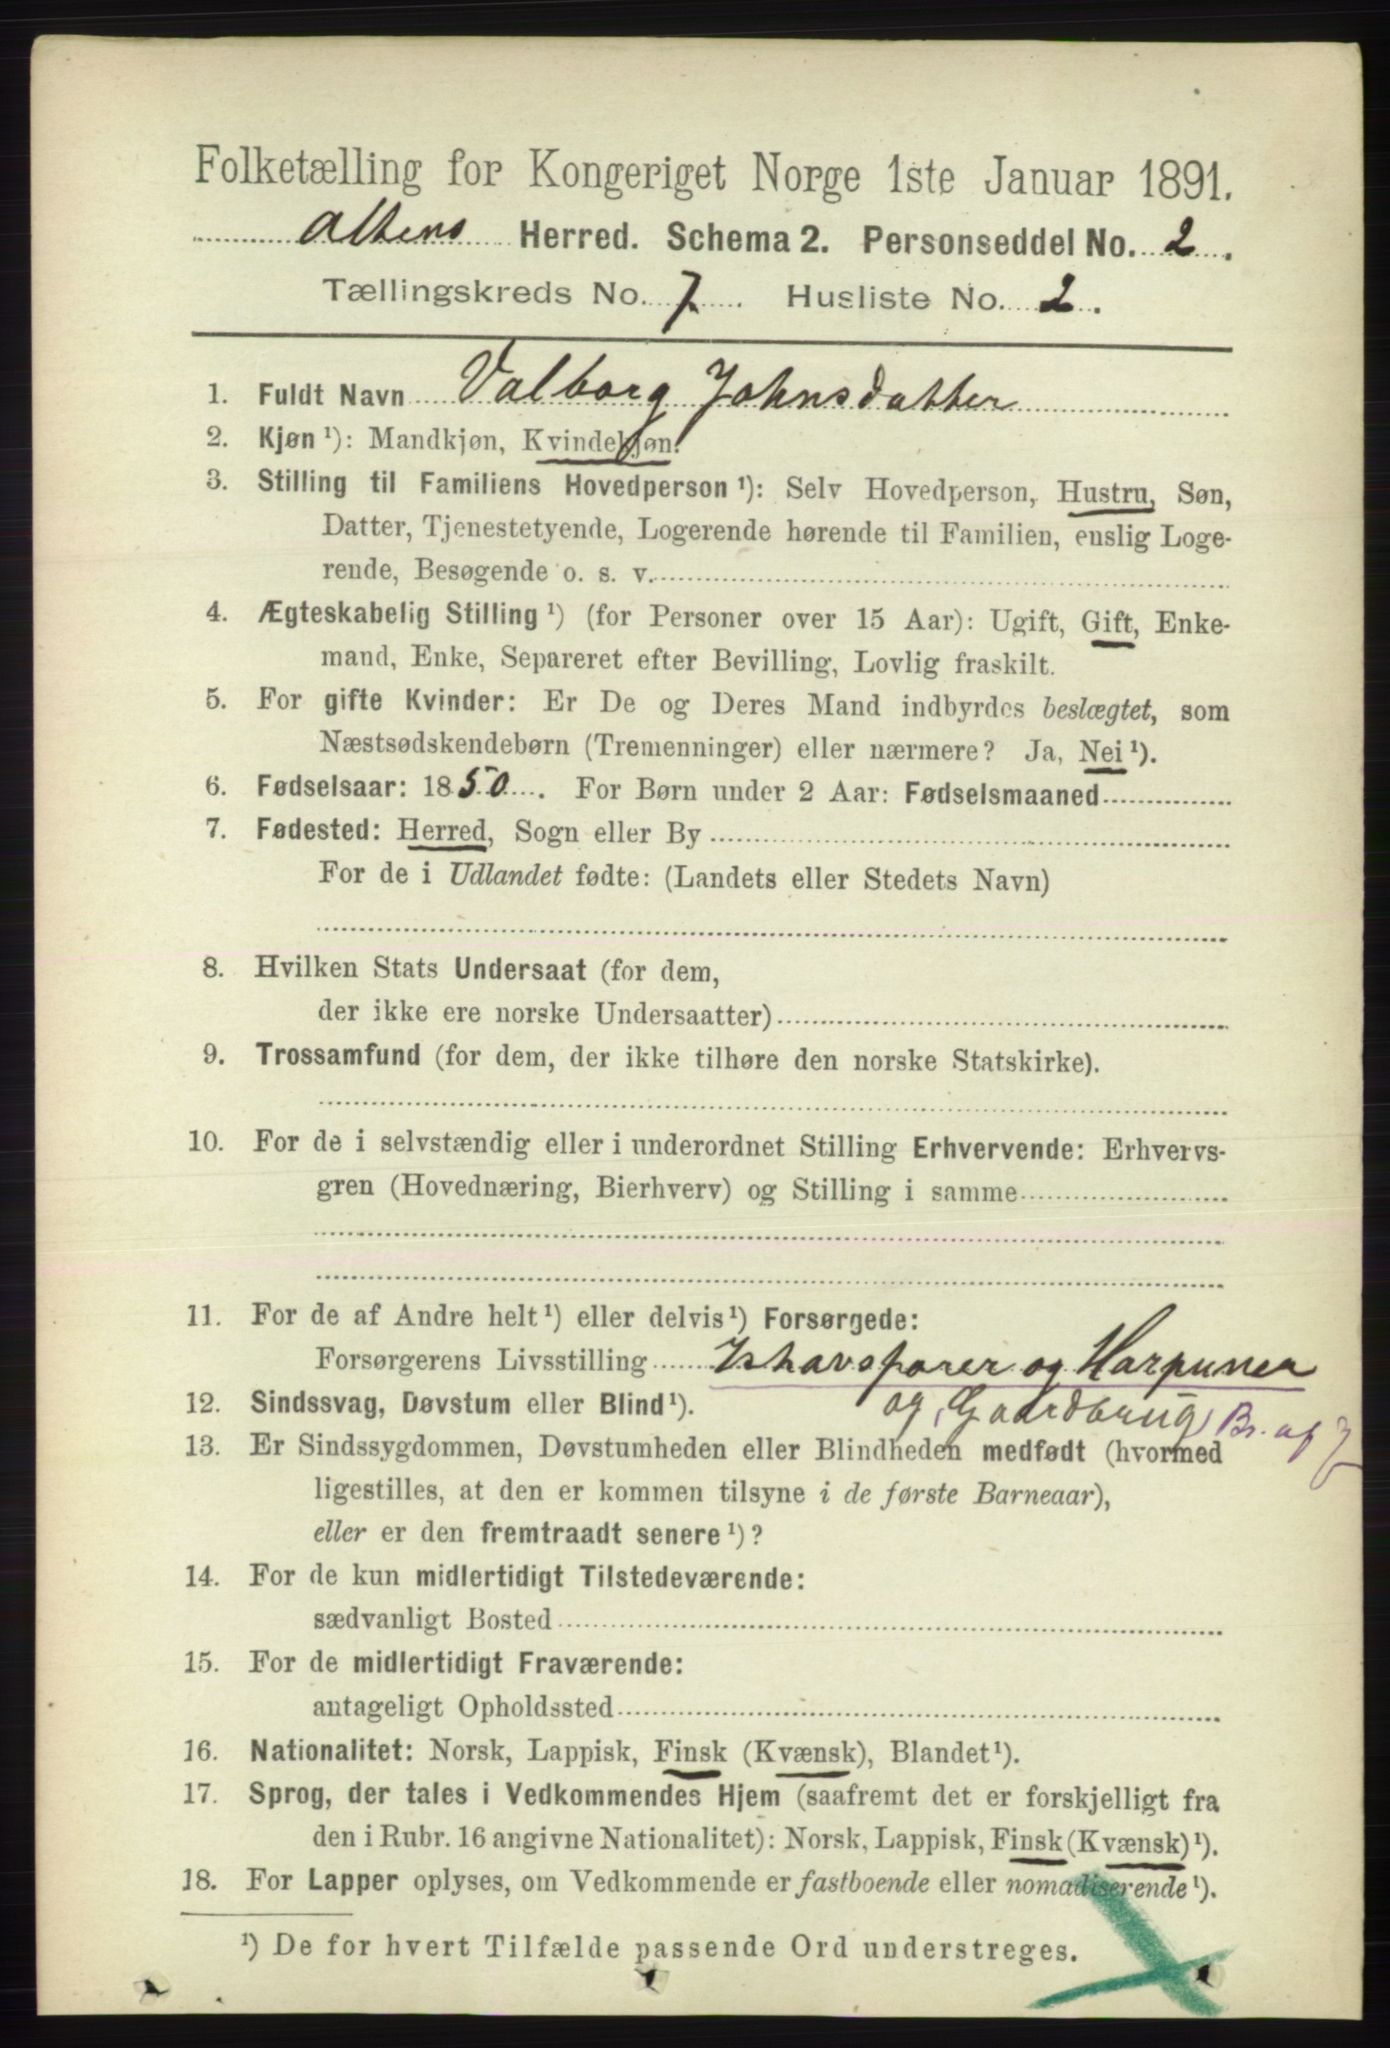 Folketælling for Kongeriget Norge 1ste Januar 1891.
Altens Herred. Schema 2. Personseddel No. 2.
Tællingskreds No. 7. Husliste No. 2.
1. Fuldt Navn Valborg Johnsdatter
2. Kjøn ¹): Mandkjøn, Kvindekjøn.
3. Stilling til Familiens Hovedperson ¹): Selv Hovedperson, Hustru, Søn,
Datter, Tjenestetyende, Logerende hørende til Familien, enslig Loge-
rende, Besøgende o. s. v.
4. Ægteskabelig Stilling ¹) (for Personer over 15 Aar): Ugift, Gift, Enke-
mand, Enke, Separeret efter Bevilling, Lovlig fraskilt.
5. For gifte Kvinder: Er De og Deres Mand indbyrdes beslægtet, som
Næstsødskendebørn (Tremenninger) eller nærmere? Ja, Nei ¹).
6. Fødselsaar: 1850. For Børn under 2 Aar: Fødselsmaaned
7. Fødested: Herred, Sogn eller By
For de i Udlandet fødte: (Landets eller Stedets Navn)
8. Hvilken Stats Undersaat (for dem,
der ikke ere norske Undersaatter)
9. Trossamfund (for dem, der ikke tilhøre den norske Statskirke).
10. For de i selvstændig eller i underordnet Stilling Erhvervende: Erhvervs-
gren (Hovednæring, Bierhverv) og Stilling i samme
11. For de af Andre helt ¹) eller delvis ¹) Forsørgede:
Forsørgerens Livsstilling Ishavsfarer og Harpuner
12. Sindssvag, Døvstum eller Blind ¹). og Gaardbrug Br. af J
13. Er Sindssygdommen, Døvstumheden eller Blindheden medfødt (hvormed
ligestilles, at den er kommen tilsyne i de første Barneaar),
eller er den fremtraadt senere ¹)?
14. For de kun midlertidigt Tilstedeværende:
sædvanligt Bosted
15. For de midlertidigt Fraværende:
antageligt Opholdssted
16. Nationalitet: Norsk, Lappisk, Finsk (Kvænsk), Blandet ¹).
17. Sprog, der tales i Vedkommendes Hjem (saafremt det er forskjelligt fra
den i Rubr. 16 angivne Nationalitet): Norsk, Lappisk, Finsk (Kvænsk) ¹).
18. For Lapper oplyses, om Vedkommende er fastboende eller nomadiserende ¹).
¹) De for hvert Tilfælde passende Ord understreges.